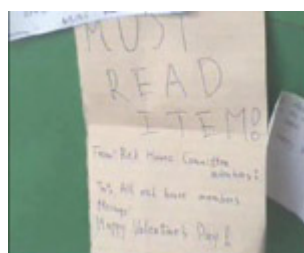 MUST
READ
ITEM!
From: Red House Committee
members!
To: All red house members
Message
Happy Valentine's Day!